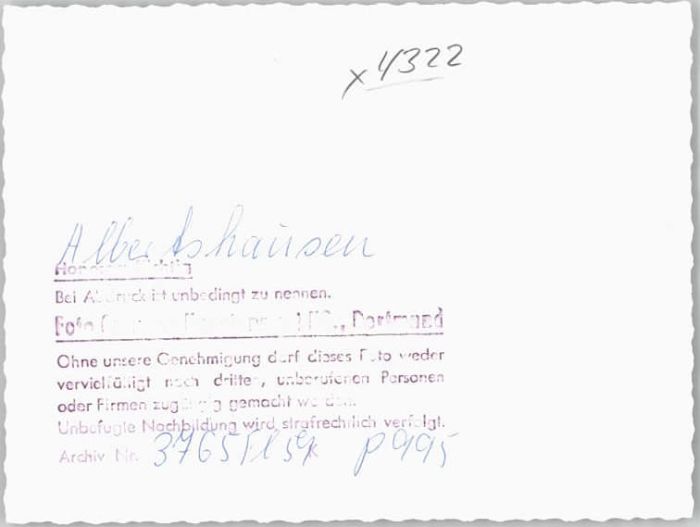 x4322
Albertshausen
Bei Abdruck ist unbedingt zu nennen.
Foto Dortmund
Ohne unsere Genehmigung darf dieses Foto weder
vervielfältigt noch dritten, unberufenen Personen
oder Firmen zugängig gemacht werden.
Unbefugte Nachbildung wird strafrechtlich verfolgt.
Archiv Nr. p 995